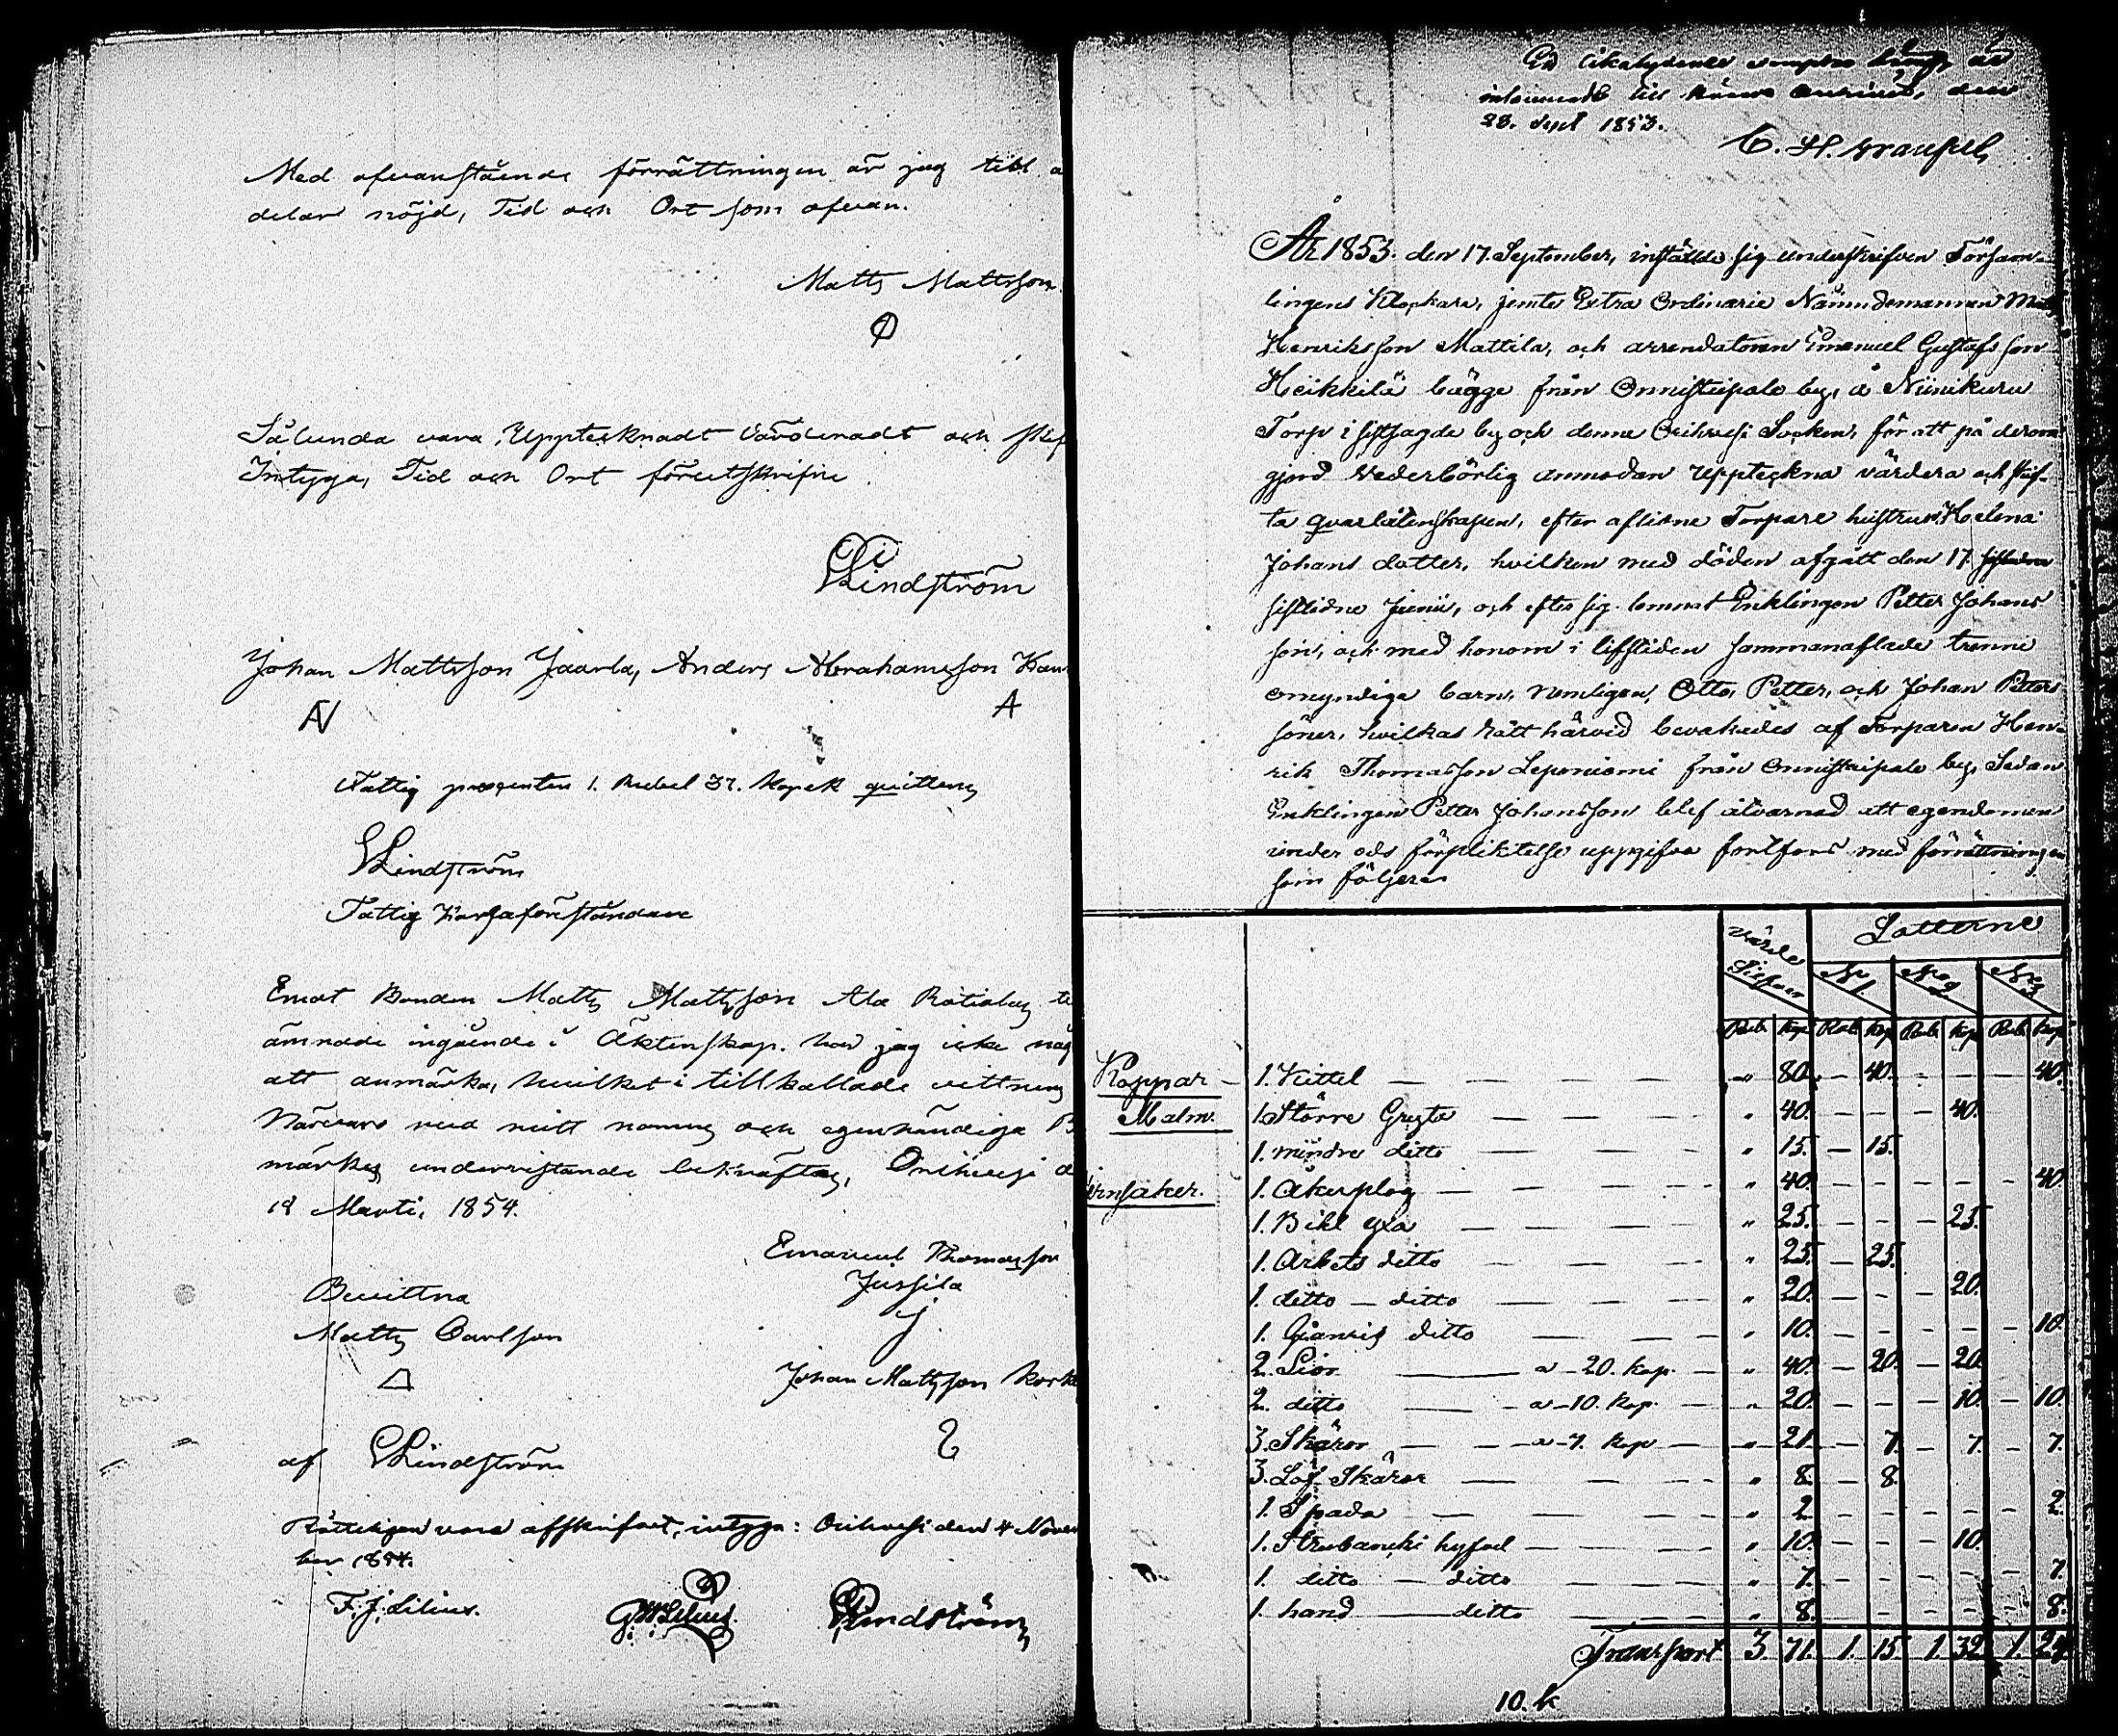 Med ofvanstående förrättningen är jag till a
delar nöjd, Tid och Ort som ofvan.
Matts Mattsson
Sålunda vara Upptecknadt Värderadt och skif
Intyga, Tid och Ort förutskrifne
E Lindström
Johan Mattsson Jaarla, Anders Abrahamsson
A
Fattig procenten 1. Rubel 37. kopek quitteras
E Lindström
Fattig Kassaföreståndare
Emot Bonden Matts Mattsson Ala
ämnade ingående i Äktenskap har jag icke någ
att anmärka, hvilket i tillkallade vittnens
Närvaro med mitt namns och egenhändiga B
märkes underristande bekräftas, Orihvesi d
18 Marti, 1854.
Emanuel Thomasson
Jussila
J
Bevittna
Matts Carlsson
Johan Mattsson
af E Lindström
Rätteligen vara afskrifvet, intyga: Orihvesi den 4 Novem
ber 1854.
F. J. Lilius. G W Lilius. E Lindström
Ett likalydande exemplar är
den
28. Sept 1853.
C. H.
År 1853. den 17. September, inställde sig underskrifven Församlingens
Klockare, jemte Extra Ordinarie Nämndemannen
Henriksson Mattila, och arrendatoren Emanuel Gustafsson
Heikkilä bägge från Onnistaipale by, å Niinikuru
Torp i sistsagde by och denne Orihvesi Socken, för att på derom
gjord vederbörlig anmodan uppteckna värdera och skif-
ta qvarlåtenskapen, efter aflidne Torpare hustrun Helena
Johans dotter, hvilken med döden afgått den 17.
sistlidne Junii, och efter sig lemnat Enklingen Petter Johans
son, och med honom i lifstiden sammanaflade trenne
omyndiga barn, nemligen, Otto, Petter, och Johan Petters
söner, hvilkas rätt härvid bevakades af Torparen Hen-
rik Thomasson Leponiemi från Onnistaipale by, Sedan
Enklingen Petter Johansson blef åtvarnad att egendomen
under eds förpliktelse uppgifva fortfors med förrättningen
som följer
Värde Silfver Lotterne
N 1. N 2 N 3
Rub. Kop. Rub. Kop. Rub. Kop. Rub. Kop.
Koppar 1. Kittel " 80. 40. 40.
Malm. 1. Större Gryta " 40. 40.
1. mindre ditto " 15. 15.
Jernsaker. 1. Åkerplog " 40. 40.
1. Bihl yxa " 25. 25.
1. Arbets ditto " 25. 25.
1. ditto ditto " 20. 20.
1. ditto " 10. 10.
2. Liar a 20. kop. " 40. 20. 20.
2. ditto a 10. kop. " 20. 10. 10.
3. Skäror a 7. kop " 21. 7. 7. 7.
3. Löf Skäror " 8. 8.
1. Spada " 2 2.
1. hyfvel " 10. 10.
1. ditto ditto " 7. 7.
1. hand ditto " 8. 8.
Transport 3. 71. 1. 15. 1. 32. 1. 24.
10. k